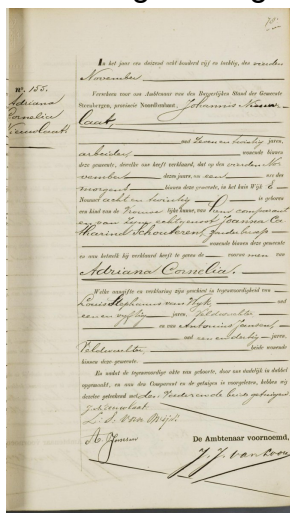 78
N°. 155.
Adriana
Cornelia
Nieuwlaat
In het jaar een duizend acht honderd vijf en tachtig, den vierden
November
Verscheen voor ons Ambtenaar van den Burgerlijken Stand der Gemeente
Steenbergen, provincie Noordbrabant, Johannis Nieuw
laat,
oud zeven en twintig jaren,
arbeider, wonende binnen
deze gemeente, dewelke ons heeft verklaard, dat op den vierden No
vember dezes jaars, ten een ure des
morgens, binnen deze gemeente, in het huis Wijk E
Nummer acht en twintig is geboren
een kind van de Vrouwelijke kunne, van hem comparant
en van zijne echtgenoot Joanna Ca
tharina Schouteren, zonder beroep
wonende binnen deze gemeente
en aan hetwelk hij verklaard heeft te geven de voornamen van
Adriana Cornelia.
Welke aangifte en verklaring zijn geschied in tegenwoordigheid van
Louis Stephanus van Wijk oud
een en vijftig jaren, Veldwachter
en van Antonius Jansen,
oud een en dertig jaren,
Veldwachter beide wonende
binnen deze gemeente.
En nadat de tegenwoordige akte van geboorte, door ons dadelijk in dubbel
opgemaakt, en aan den Comparant en de getuigen is voorgelezen, hebben wij
dezelve geteekend met den Vader en de beide getuigen
J. Nieuwlaat
L. S. van Wijk
A. Jansen
De Ambtenaar voornoemd,
J. J. van Loon